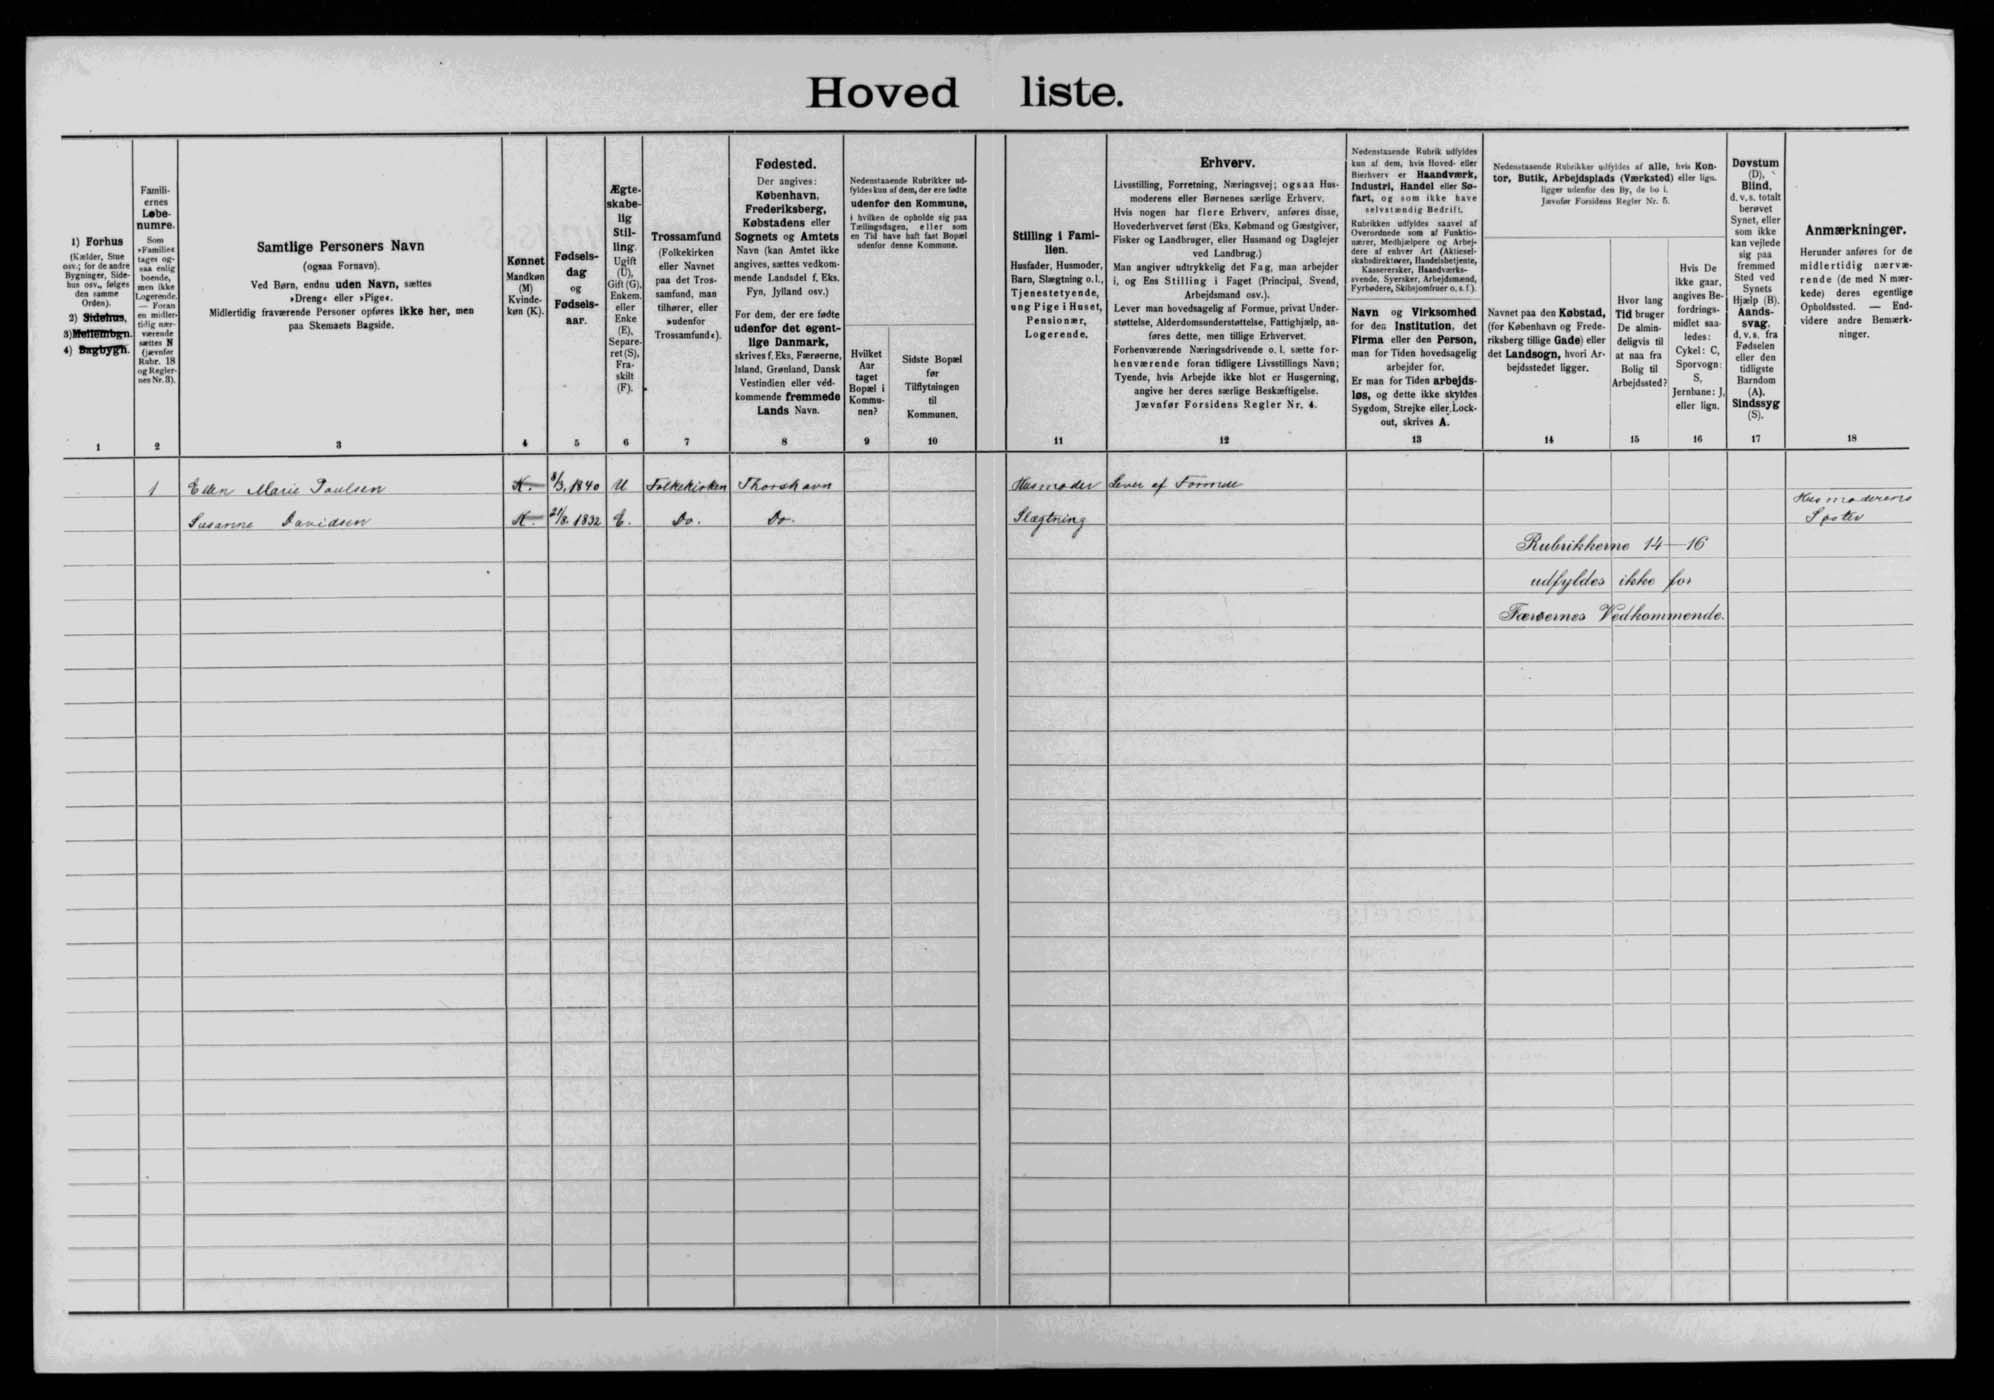 Hovedliste.
1) Forhus
(Kælder, Stue
osv.; for de andre
Bygninger, Side-
hus osv., følges
den samme
Orden).
2) Sidehus,
3) Mellembgn.
4) Bagbygn.
1
Famili-
ernes
Løbe-
numre.
Som
»Familie«
tages og-
saa enlig
boende,
men ikke
Logerende.
— Foran
en midler-
tidig nær-
værende
sættes N
(jævnfør
Rubr. 18
og Regler-
nes Nr. 3).
2
Samtlige Personers Navn
(ogsaa Fornavn).
Ved Børn, endnu uden Navn, sættes
»Dreng« eller »Pige«.
Midlertidig fraværende Personer opføres ikke her, men
paa Skemaets Bagside.
3
Kønnet
Mandkøn
(M)
Kvinde-
køn (K).
4
Fødsels-
dag
og
Fødsels-
aar.
5
Ægte-
skabe-
lig
Stil-
ling.
Ugift
(U),
Gift (G),
Enkem.
eller
Enke
(E),
Separe-
ret (S),
Fra-
skilt
(F).
6
Trossamfund
(Folkekirken
eller Navnet
paa det Tros-
samfund, man
tilhører, eller
»udenfor
Trossamfund«).
7
Fødested.
Der angives:
København,
Frederiksberg,
Købstadens eller
Sognets og Amtets
Navn (kan Amtet ikke
angives, sættes vedkom-
mende Landsdel f. Eks.
Fyn, Jylland osv.)
For dem, der ere fødte
udenfor det egent-
lige Danmark,
skrives f. Eks. Færøerne,
Island, Grønland, Dansk
Vestindien eller ved-
kommende fremmede
Lands Navn.
8
Nedenstaaende Rubrikker ud-
fyldes kun af dem, der ere fødte
udenfor den Kommune,
i hvilken de opholde sig paa
Tællingsdagen, eller som
en Tid have haft fast Bopæl
udenfor denne Kommune.
Hvilket
Aar
taget
Bopæl i
Kommu-
nen?
9
Sidste Bopæl
før
Tilflytningen
til
Kommunen.
10
Stilling i Fami-
lien.
Husfader, Husmoder,
Barn, Slægtning o. l.,
Tjenestetyende,
ung Pige i Huset,
Pensionær,
Logerende.
11
Erhverv.
Livsstilling, Forretning, Næringsvej; ogsaa Hus-
moderens eller Børnenes særlige Erhverv.
Hvis nogen har flere Erhverv, anføres disse,
Hovederhvervet først (Eks. Købmand og Gæstgiver,
Fisker og Landbruger, eller Husmand og Daglejer
ved Landbrug.)
Man angiver udtrykkelig det Fag, man arbejder
i, og Ens Stilling i Faget (Principal, Svend,
Arbejdsmand osv.).
Lever man hovedsagelig af Formue, privat Under-
støttelse, Alderdomsunderstøttelse, Fattighjælp, an-
føres dette, men tillige Erhvervet.
Forhenværende Næringsdrivende o. l. sætte for-
henværende foran tidligere Livsstillings Navn;
Tyende, hvis Arbejde ikke blot er Husgerning,
angive her deres særlige Beskæftigelse.
Jævnfør Forsidens Regler Nr. 4.
12
Nedenstaaende Rubrik udfyldes
kun af dem, hvis Hoved- eller
Bierhverv er Haandværk,
Industri, Handel eller Sø-
fart, og som ikke have
selvstændig Bedrift.
Rubrikken udfyldes saavel af
Overordnede som af Funktio-
nærer, Medhjælpere og Arbej-
dere af enhver Art (Aktiesel-
skabsdirektører, Handelsbetjente,
Kasserersker, Haandværks-
svende, Syersker, Arbejdsmænd,
Fyrbødere, Skibsjomfruer o. s. f.).
Navn og Virksomhed
for den Institution, det
Firma eller den Person,
man for Tiden hovedsagelig
arbejder for.
Er man for Tiden arbejds-
løs, og dette ikke skyldes
Sygdom, Strejke eller Lock-
out, skrives A.
13
Nedenstaaende Rubrikker udfyldes af alle, hvis Kon-
tor, Butik, Arbejdsplads (Værksted) eller lign.
ligger udenfor den By, de bo i.
Jævnfør Forsidens Regler Nr. 5.
Navnet paa den Købstad,
(for København og Frede-
riksberg tillige Gade) eller
det Landsogn, hvori Ar-
bejdsstedet ligger.
14
Hvor lang
Tid bruger
De almin-
deligvis til
at naa fra
Bolig til
Arbejdssted?
15
Hvis De
ikke gaar,
angives Be-
fordrings-
midlet saa-
ledes:
Cykel: C,
Sporvogn:
S,
Jernbane: J,
eller lign.
16
Døvstum
(D),
Blind,
d. v. s. totalt
berøvet
Synet, eller
som ikke
kan vejlede
sig paa
fremmed
Sted ved
Synets
Hjælp (B).
Aands-
svag,
d. v. s. fra
Fødselen
eller den
tidligste
Barndom
(A).
Sindssyg
(S).
17
Anmærkninger.
Herunder anføres for de
midlertidig nærvæ-
rende (de med N mær-
kede) deres egentlige
Opholdssted. — End-
videre andre Bemærk-
ninger.
18
1 Ellen Marie Poulsen K. 8/3. 1840 U Folkekirken Thorshavn Husmoder Lever af Formue
Susanne Davidsen K. 21/8. 1832 E. Do. Do. Slægtning Husmoderens
Søster
Rubrikkerne 14—16
udfyldes ikke for
Færøernes Vedkommende.